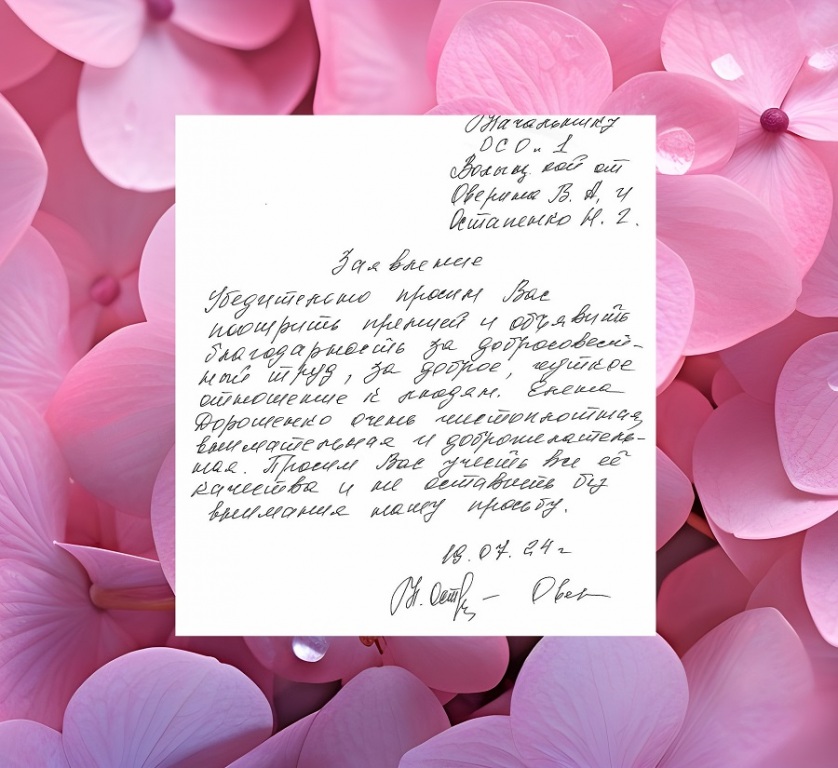 Начальнику
ОСО №1
от
Оверина В. А, и
Остапенко Н. Г.
Заявление
Убедительно просим Вас
поощрить премией и объявить
благодарность за добросовест-
ный труд, за доброе, чуткое
отношение к людям. Елена
Дорошенко очень чистоплотная,
внимательная и доброжелатель-
ная. Просим Вас учесть все её
качества и не оставить без
внимания нашу просьбу.
19.07.24 г
Н. Ост – Овер